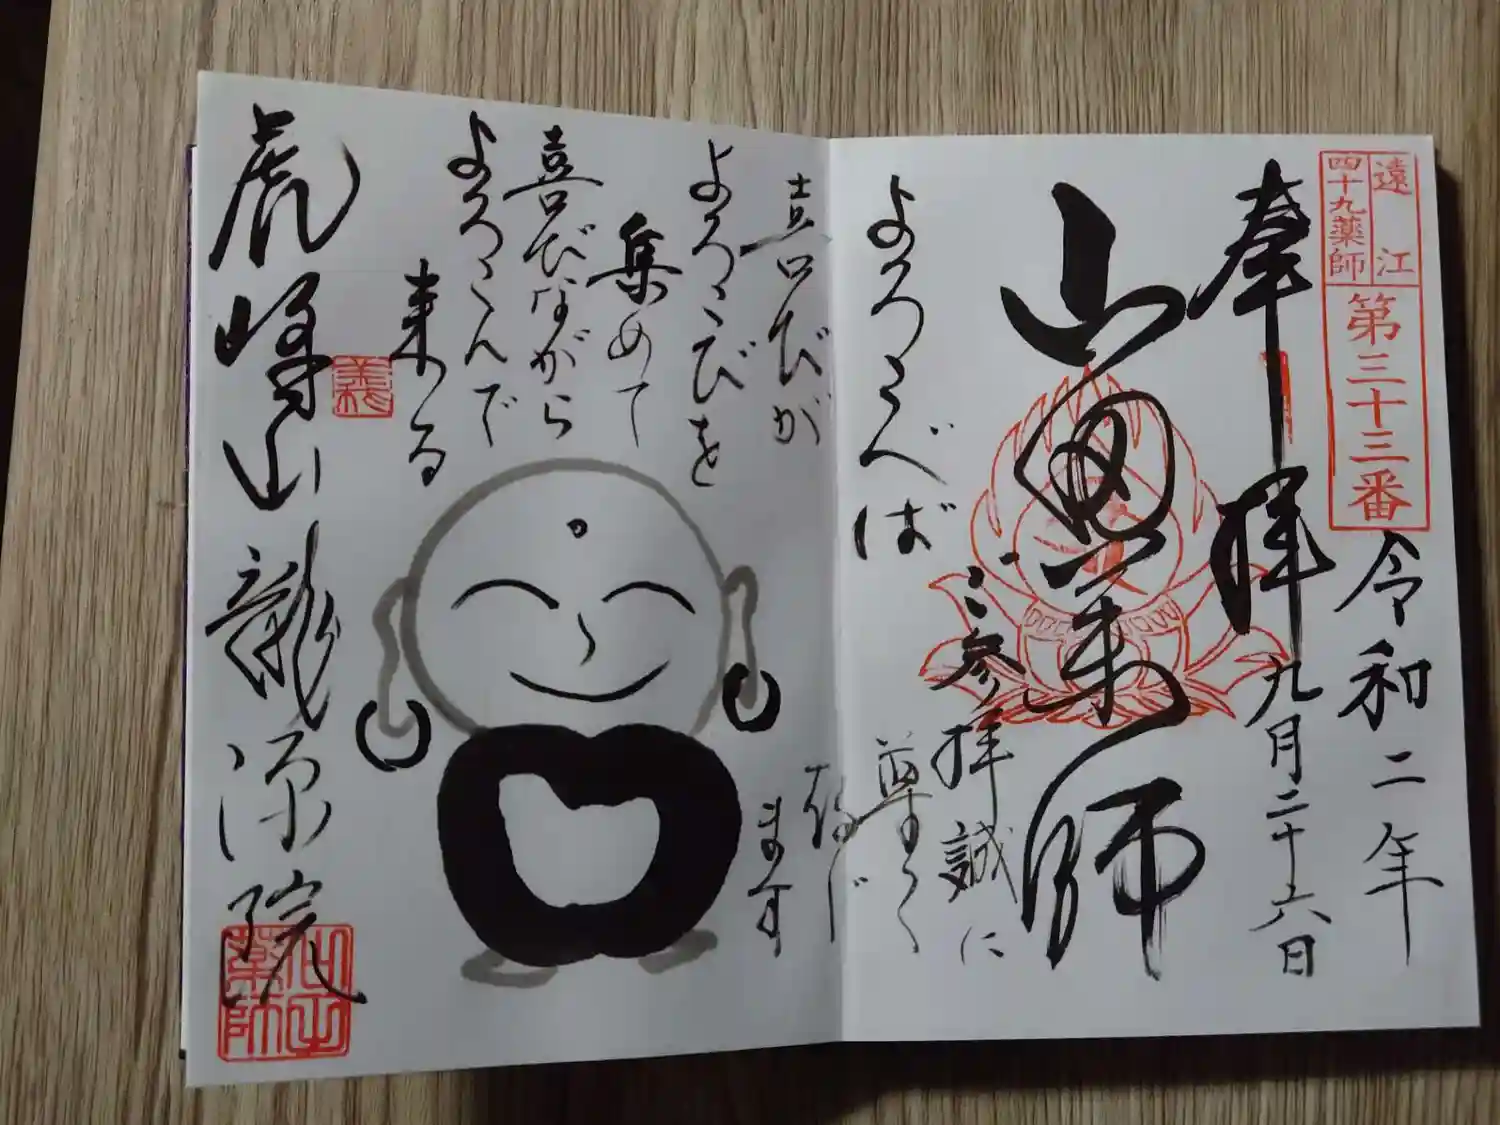 遠江
四十九薬師
第三十三番
令和二年
九月二十六日
奉拝
山 薬師
よろこべば
喜びが
よろこびを
集めて
喜びながら
よろこんで
来る
ご参拝誠に
尊く
存じ
ます
虎峰山龍源院
薬師